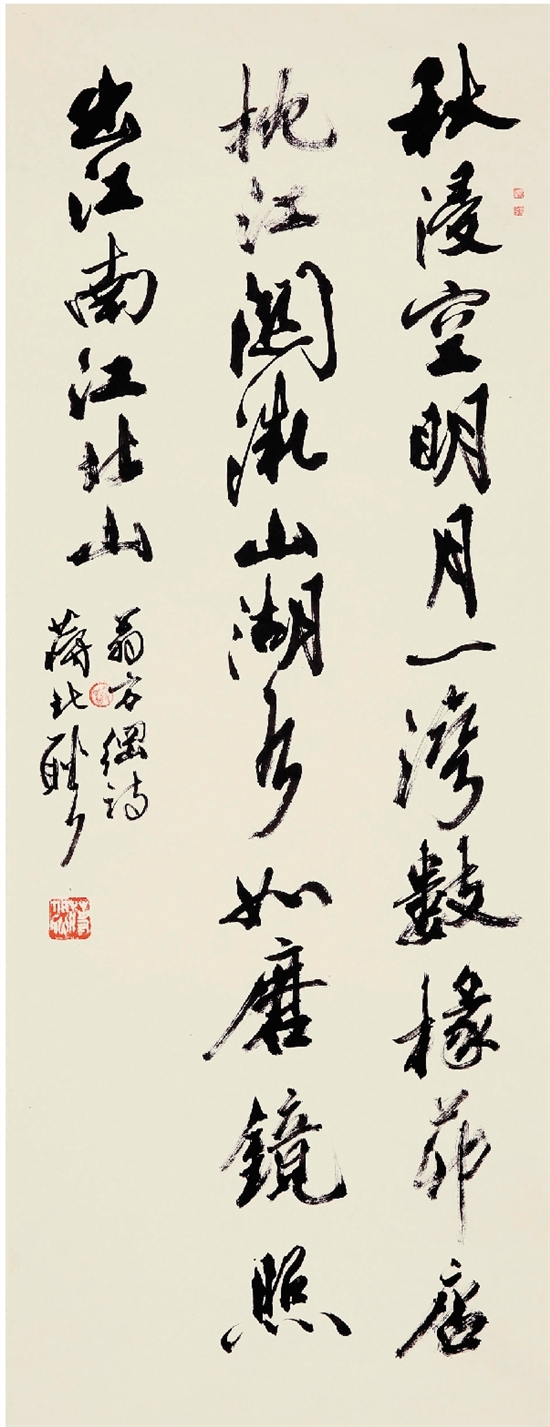 秋浸空明月一灣數椽茆店
枕江関微山湖水如磨鏡照
出江南江北山
翁方綱詩
蔣北耿